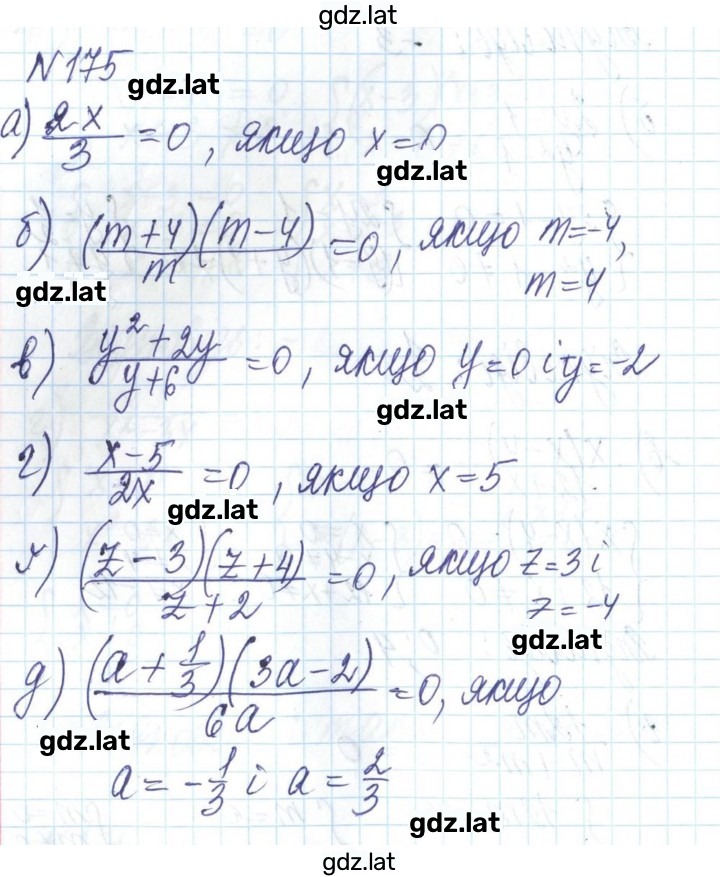 gdz.lat
N 175
gdz.lat
а) 2x/3 = 0, якщо x = 0
gdz.lat
б) (m+4)(m-4)/m = 0, якщо m = -4,
m = 4
gdz.lat
в) y²+2y/y+6 = 0, якщо y = 0 і y = -2
gdz.lat
г) x-5/2x = 0, якщо x = 5
gdz.lat
ґ) (z-3)(z+4)/z+2 = 0, якщо z = 3 і
z = -4
gdz.lat
д) (a+1/3)(3a-2)/6a = 0, якщо
gdz.lat
a = -1/3 і a = 2/3
gdz.lat
gdz.lat